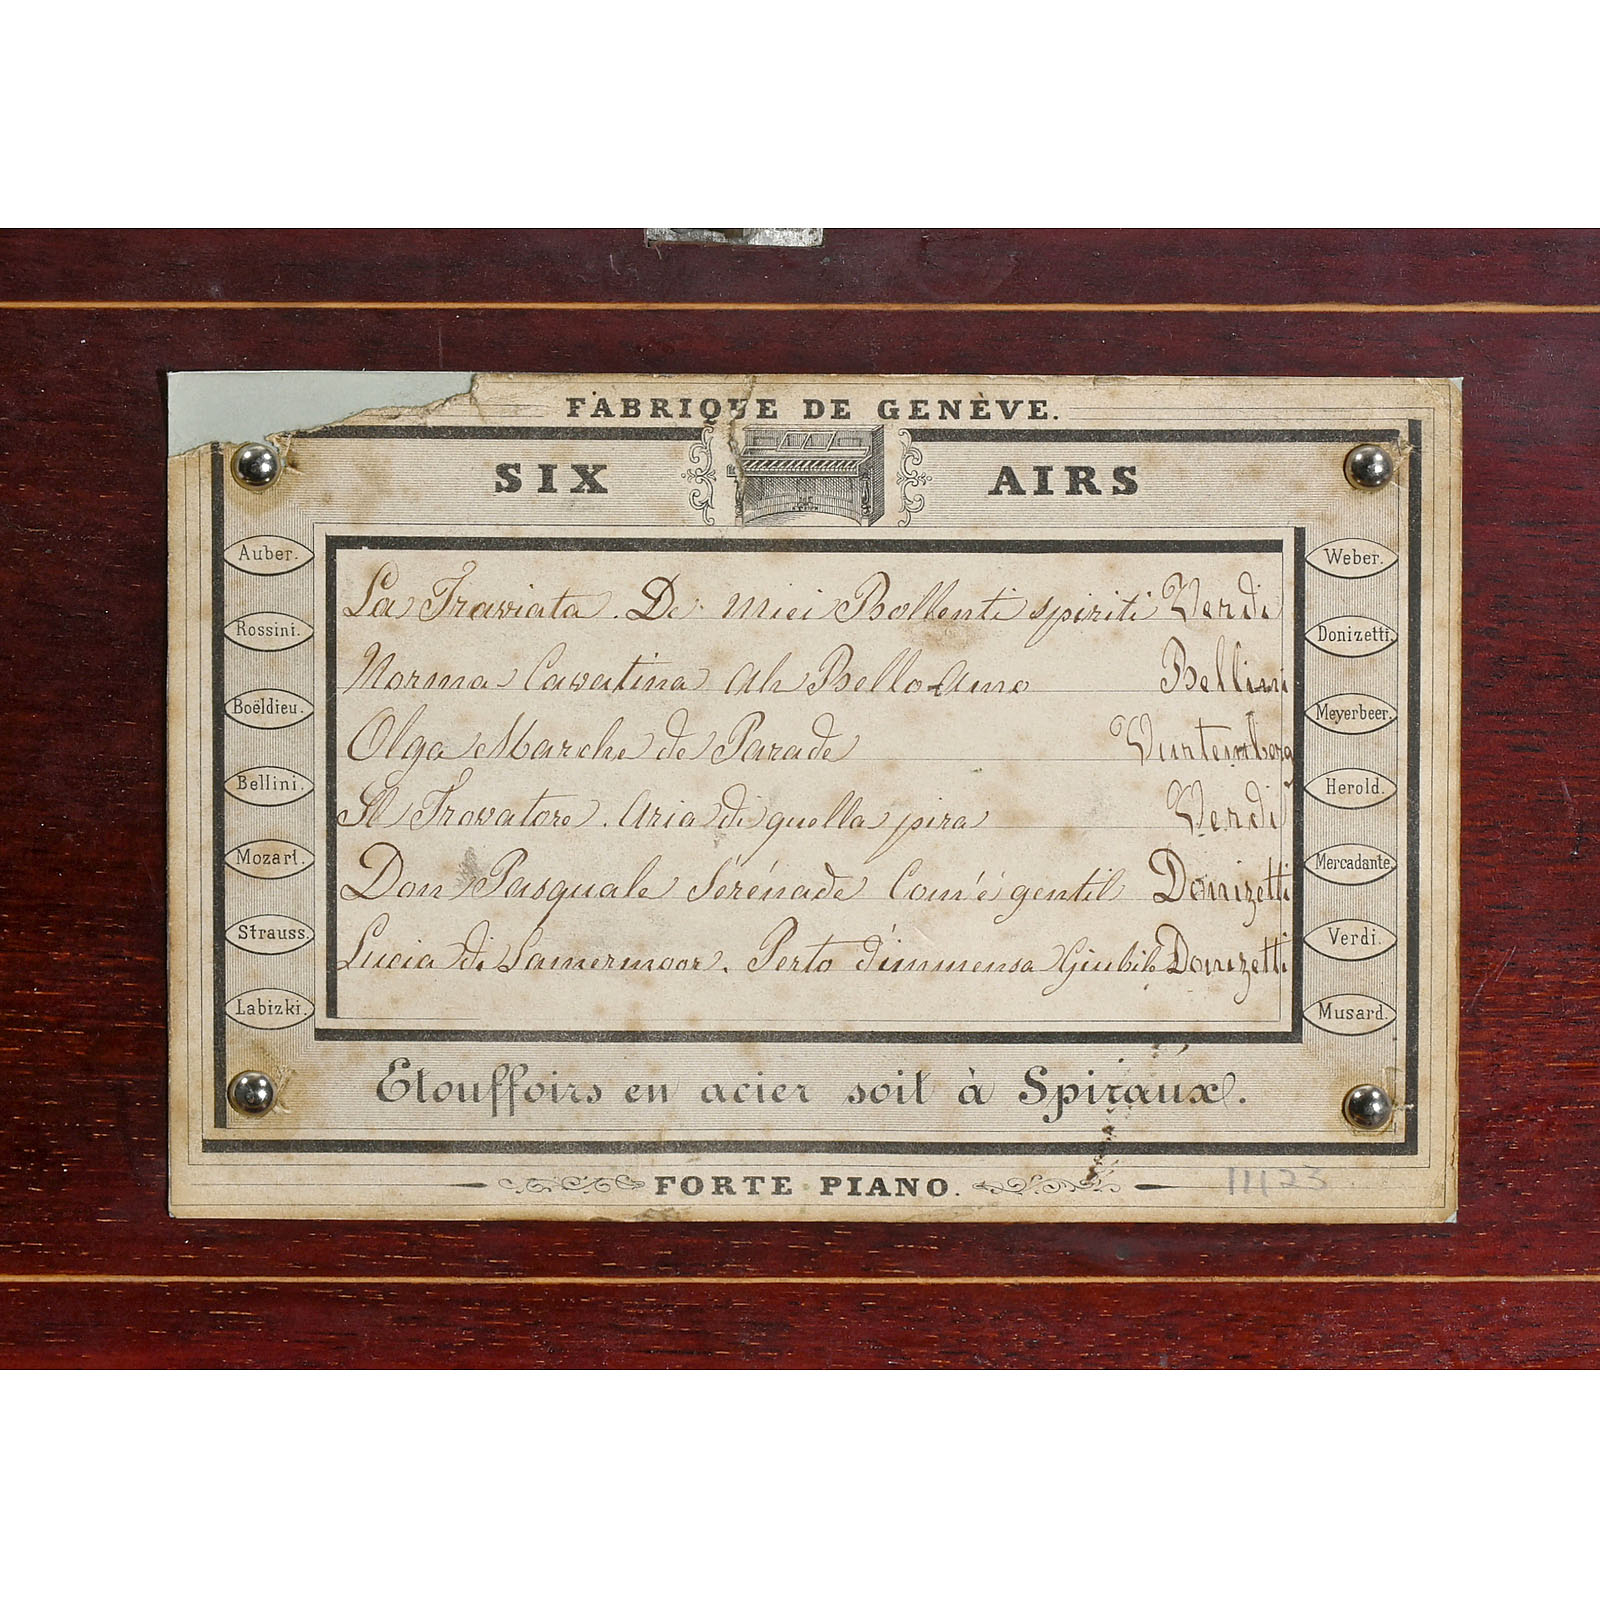 FABRIQUE DE GENÈVE.
SIX AIRS
Auber.
Rossini.
Boëldieu.
Bellini.
Mozart.
Strauss.
Labizki.
La Traviata. De miei Bollenti spiriti Verdi
Norma Cavatina Ah Bello Amo Bellini
Olga Marche de Parade
Il Trovatore. Aria di quella pira Verdi
Don Pasquale Sérénade Com'é gentil Donizetti
Lucia di Lamermoor. Perto d'immensa Giubilo Donizetti
Weber.
Donizetti.
Meyerbeer.
Herold.
Mercadante.
Verdi.
Musard.
Etouffoirs en acier soit à Spiraux.
FORTE PIANO.